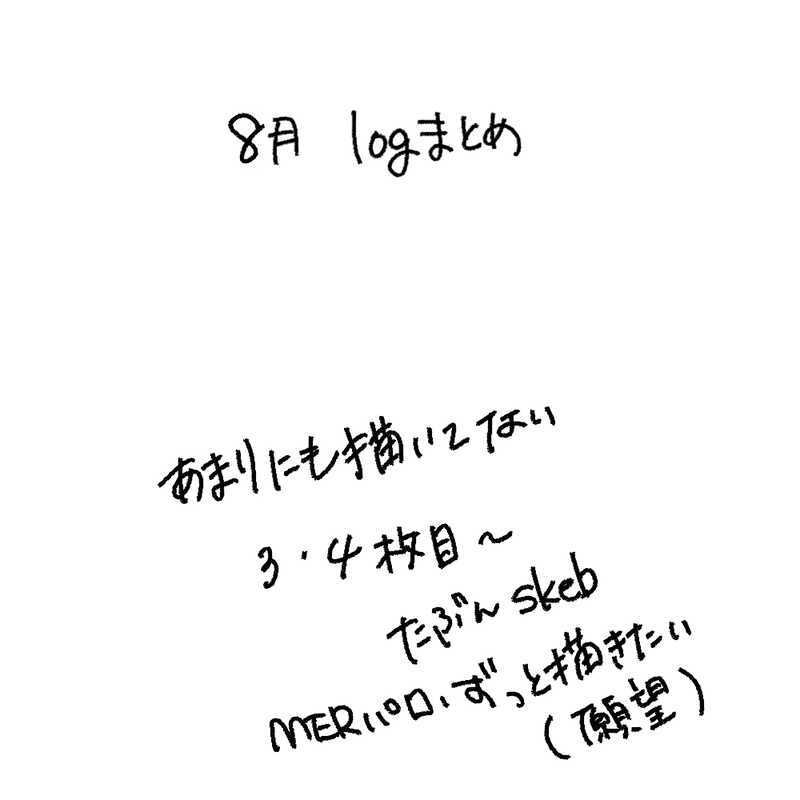 8月 logまとめ
あまりにも描いてない
3・4枚目〜
たぶんskeb
MERパロ、ずっと描きたい
(願望)